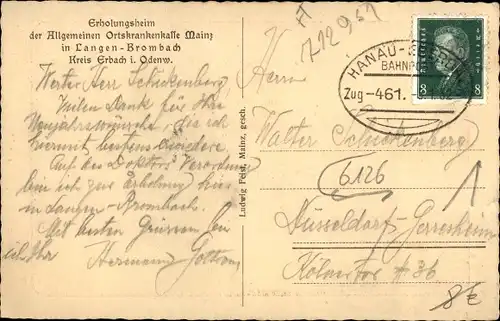 Erholungsheim
der Allgemeinen Ortskrankenkasse Mainz
in Langen-Brombach
Kreis Erbach i. Odenw.
Werter Herr Schickenberg,
Vielen Dank für Ihre
Neujahrswünsche, die ich
hiermit bestens erwidere
Auf des Doktors Verordnung
bin ich zur Erholung hier
in Langen-Brombach.
Mit besten Grüssen bin
ich Ihr Hermann
Ludwig Feist, Mainz, gesch.
HANAU-
BAHNPOST
Zug-461.
8 8
Herrn
Walter Schickenberg
6126
1
Düsseldorf-Gerresheim
Kölnertor # 36
8 €